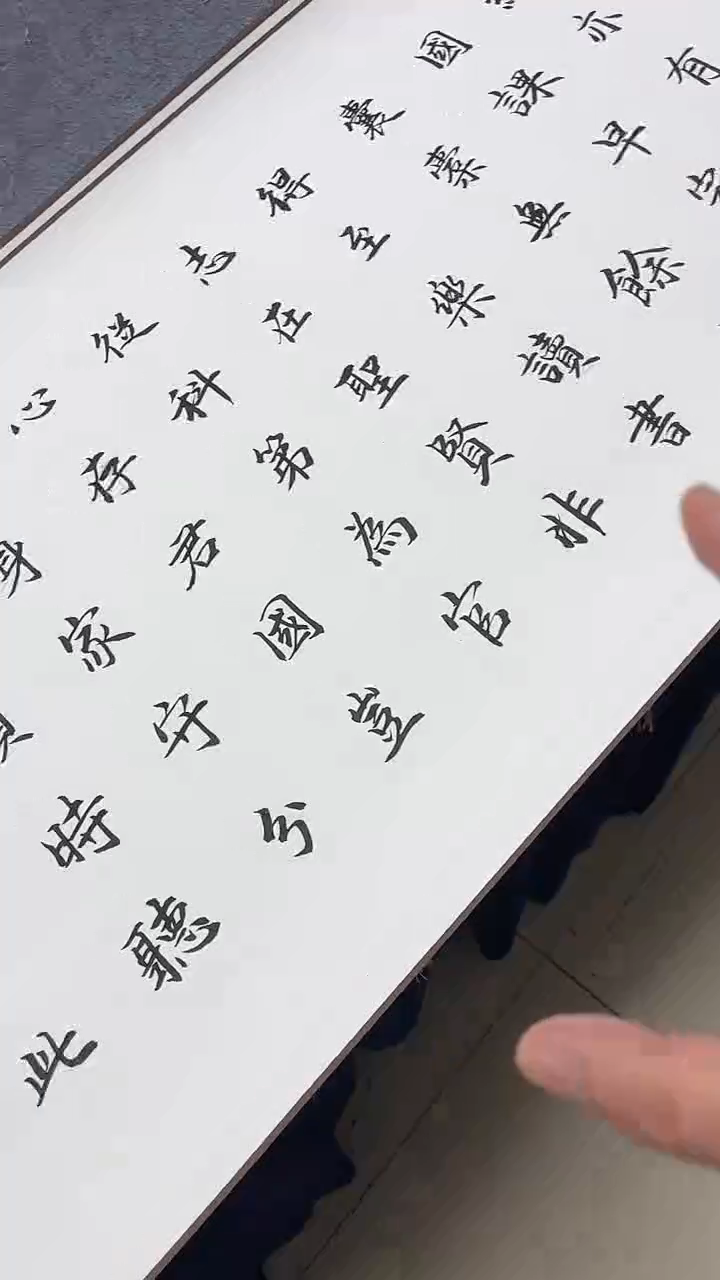 亦有
國課早完
囊橐無餘
得至樂讀書
志在聖賢非
徒科第為官
心存君國豈
身家守分
時聽
此